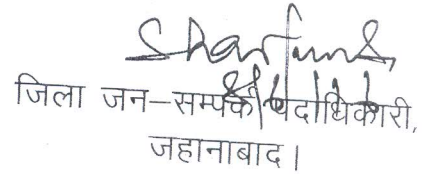 जिला जन-सम्पर्क पदाधिकारी,
जहानाबाद।